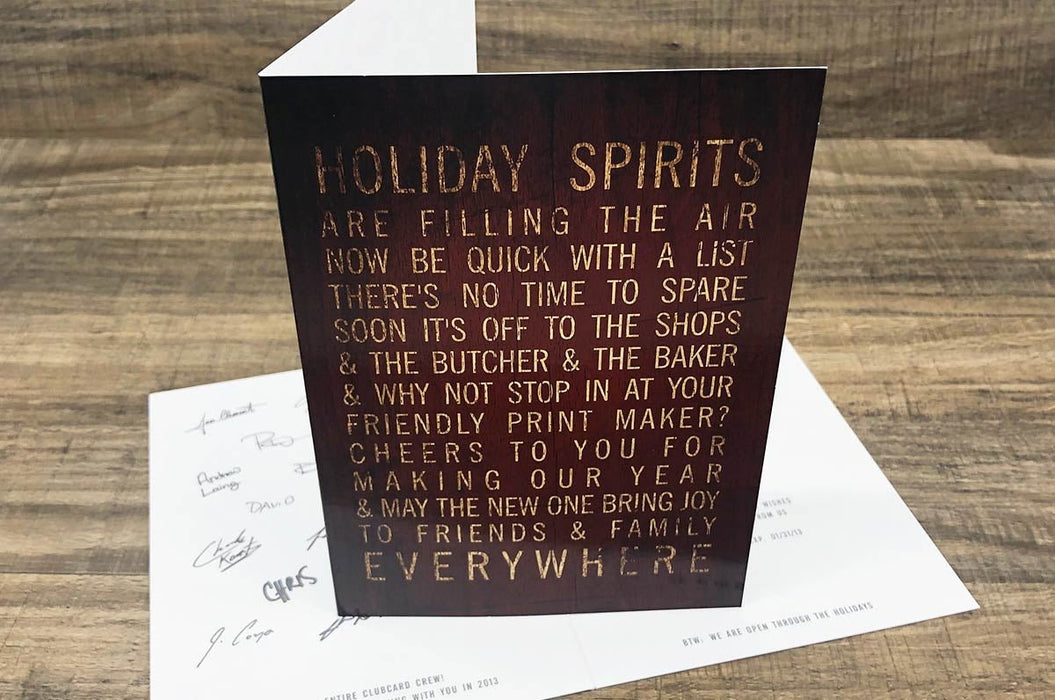 HOLIDAY SPIRITS
ARE FILLING THE AIR
NOW BE QUICK WITH A LIST
THERE'S NO TIME TO SPARE
SOON IT'S OFF TO THE SHOPS
& THE BUTCHER & THE BAKER
& WHY NOT STOP IN AT YOUR
FRIENDLY PRINT MAKER?
CHEERS TO YOU FOR
MAKING OUR YEAR
& MAY THE NEW ONE BRING JOY
TO FRIENDS & FAMILY
EVERYWHERE
Andrew
Laing
DAVID
CHRIS
ENTIRE CLUBCARD CREW!
WITH YOU IN 2013
WISHES
FROM US
01/31/13
BTW: WE ARE OPEN THROUGH THE HOLIDAYS